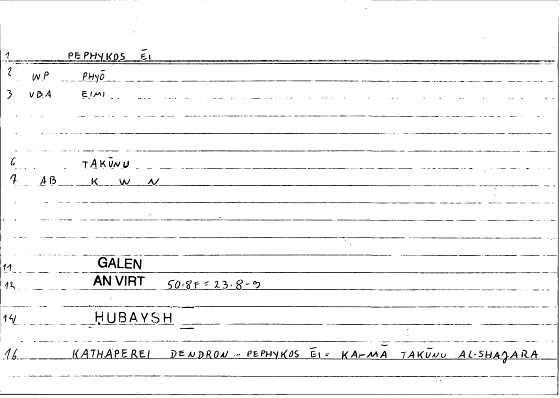 1 PEPHYKOS ĒI
2 WP PHYŌ
3 VBA EIMI
6 TAKŪNU
7 AB K W N
11 GALEN
12 AN VIRT 50.8f = 23.8-9
14 ḤUBAYSH
16 KATHAPEREI DENDRON .. PEPHYKOS ĒI = KA-MĀ TAKŪNU AL-SHAJARA